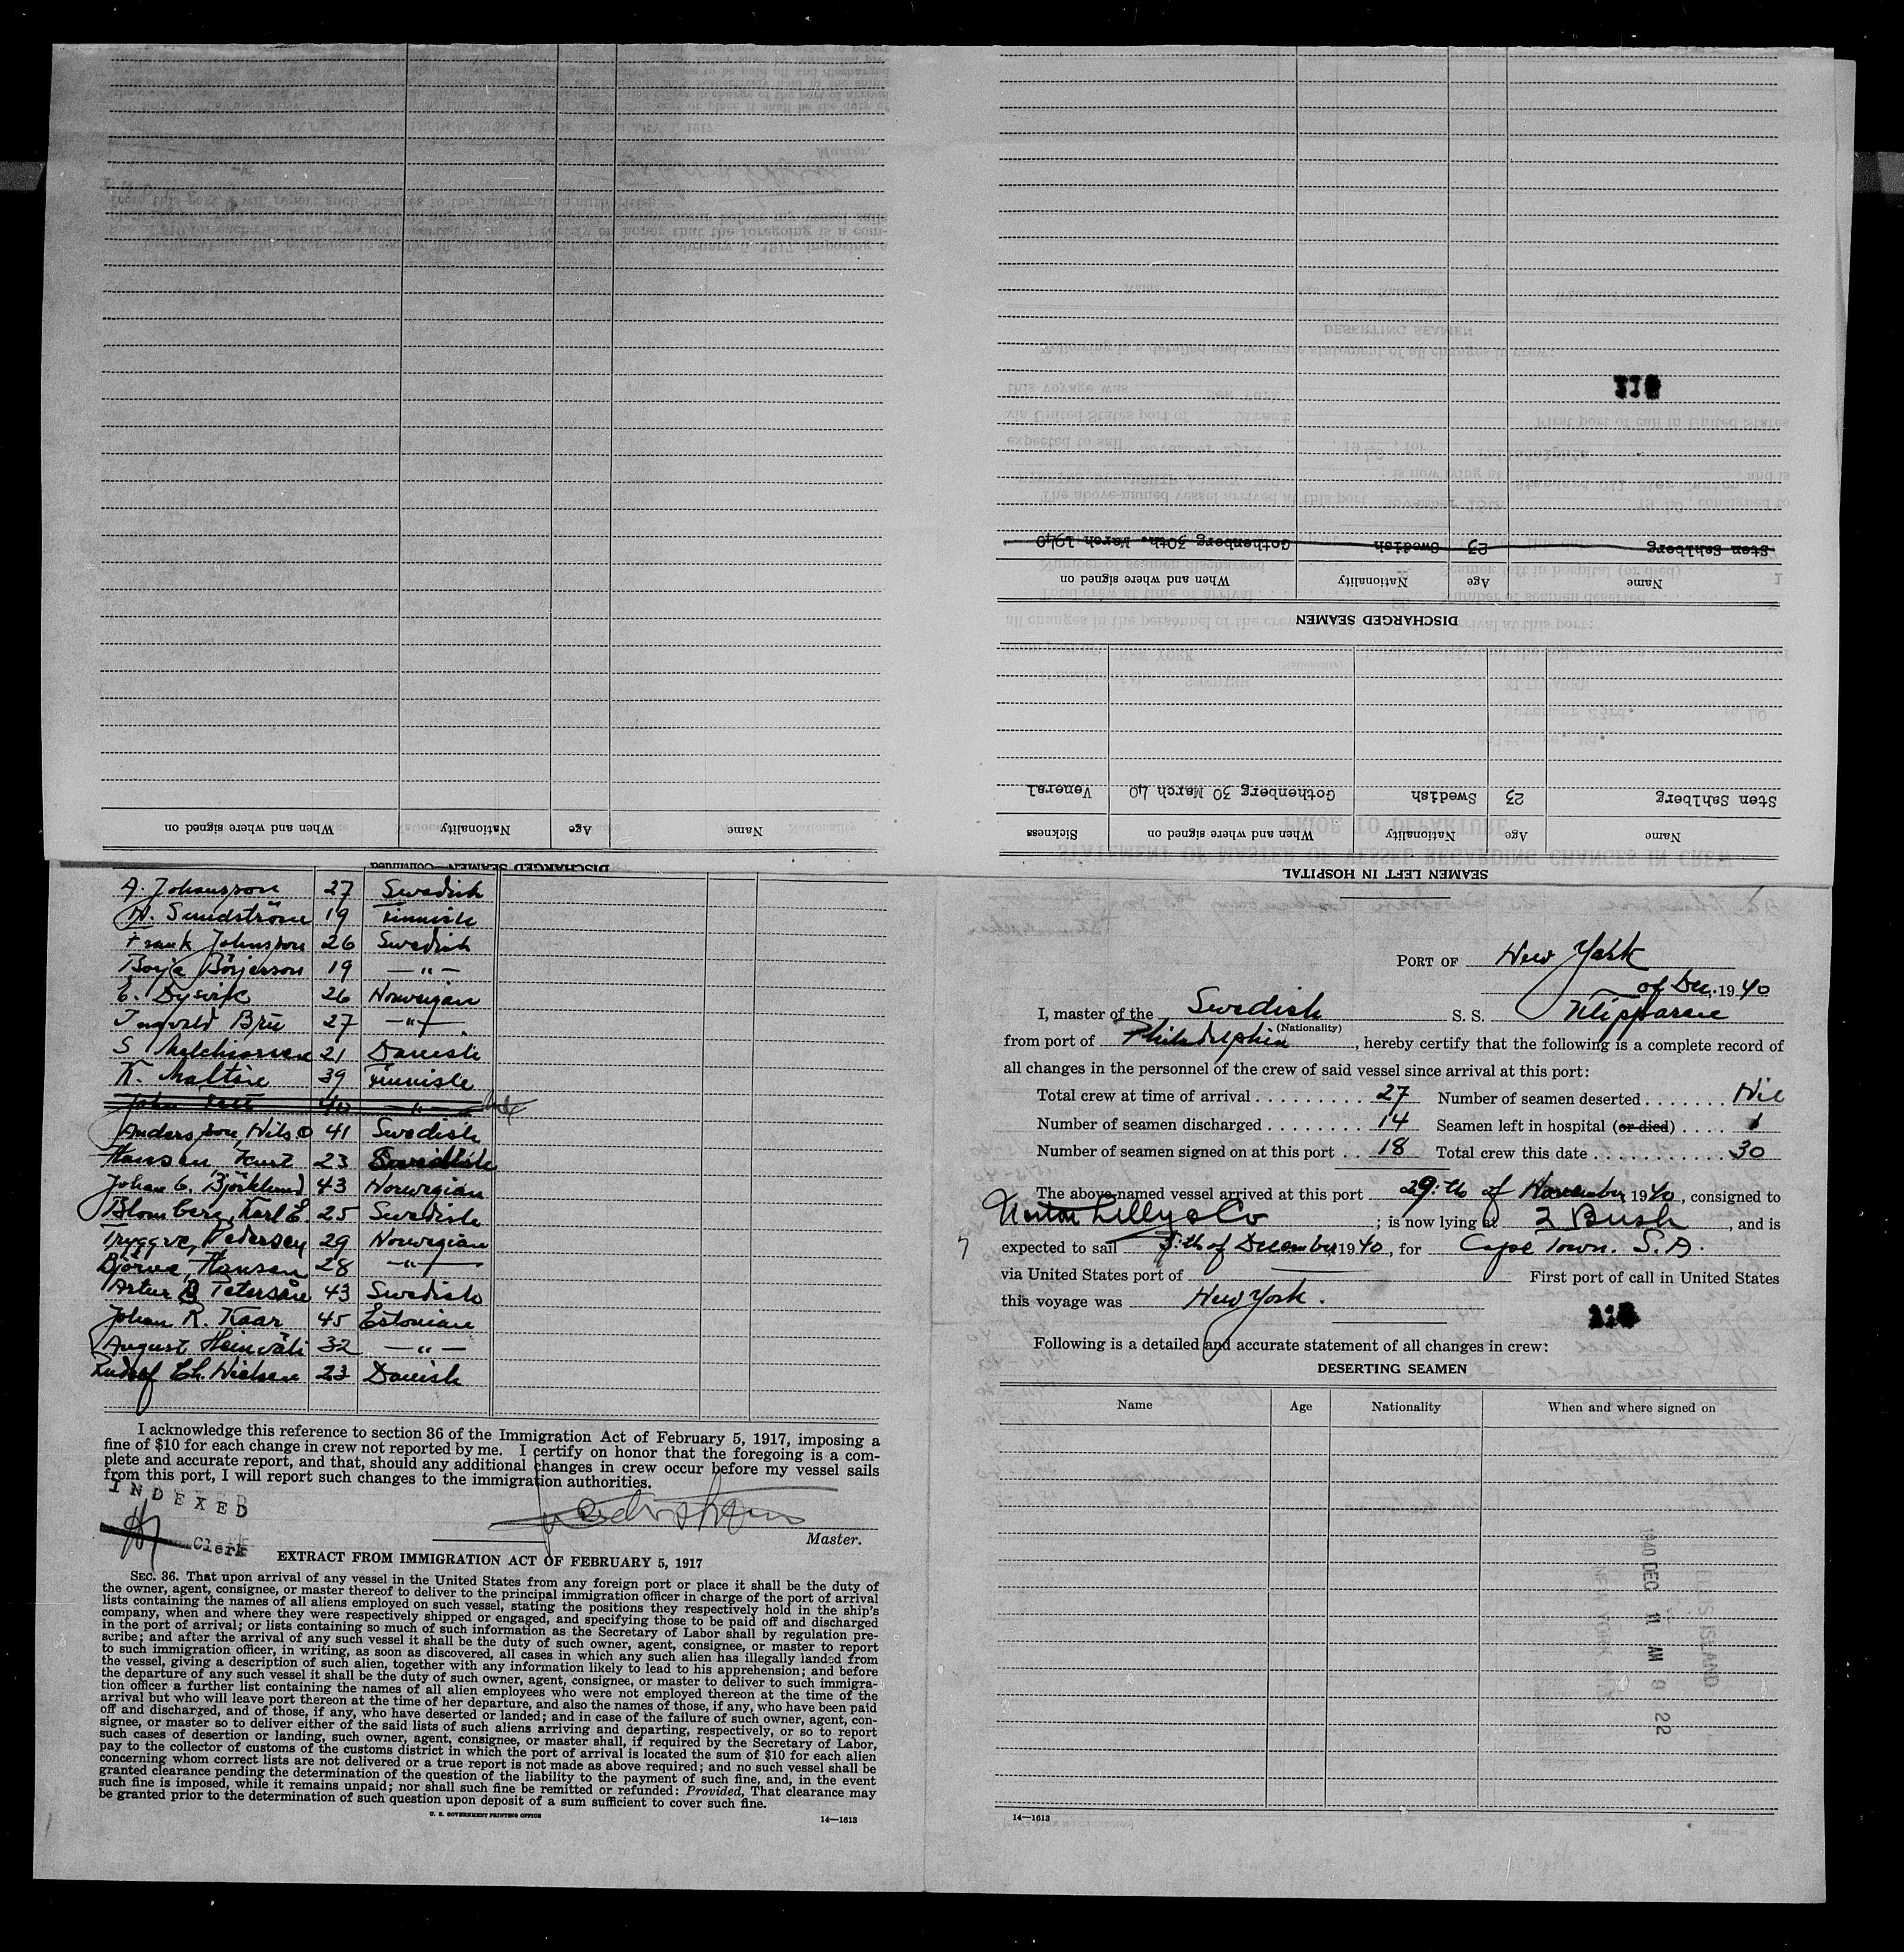 SEAMEN LEFT IN HOSPITAL
Name Age Nationality When and where signed on Sickness
Sten Sahlberg 23 Swedish Gothenberg 30 March 40 Veneral
DISCHARGED SEAMEN
Name Age Nationality When and where signed on
Sten Sahlberg 23 Swedish Gothenberg 30th. March 1940
DISCHARGED SEAMEN—Continued
Name Age Nationality When and where signed on
A. Johansson 27 Swedish
N. Sundström 19 Finnish
Frank Johnsson 26 Swedish
Börjesson 19 — " —
E. Dysvik 26 Norwegian
27 — " —
S 21 Danish
K. 39 Finnish
John 40 — " —
Andersson, Nils O 41 Swedish
Hansen, Kurt 23 Swedish
Johan C. Björklund 43 Norwegian
Blomberg, Karl E. 25 Swedish
Tryggve, Pedersen 29 Norwegian
Hansen 28 — " —
Artur 43 Swedish
Johan R. Kaar 45 Estonian
August Heinväli 32 — " —
Rudolf Ch. Nielsen 23 Danish
I acknowledge this reference to section 36 of the Immigration Act of February 5, 1917, imposing a
fine of $10 for each change in crew not reported by me. I certify on honor that the foregoing is a com-
plete and accurate report, and that, should any additional changes in crew occur before my vessel sails
from this port, I will report such changes to the immigration authorities.
INDEXED
Clerk
Master.
EXTRACT FROM IMMIGRATION ACT OF FEBRUARY 5, 1917
SEC. 36. That upon arrival of any vessel in the United States from any foreign port or place it shall be the duty of
the owner, agent, consignee, or master thereof to deliver to the principal immigration officer in charge of the port of arrival
lists containing the names of all aliens employed on such vessel, stating the positions they respectively hold in the ship's
company, when and where they were respectively shipped or engaged, and specifying those to be paid off and discharged
in the port of arrival; or lists containing so much of such information as the Secretary of Labor shall by regulation pre-
scribe; and after the arrival of any such vessel it shall be the duty of such owner, agent, consignee, or master to report
to such immigration officer, in writing, as soon as discovered, all cases in which any such alien has illegally landed from
the vessel, giving a description of such alien, together with any information likely to lead to his apprehension; and before
the departure of any such vessel it shall be the duty of such owner, agent, consignee, or master to deliver to such immigra-
tion officer a further list containing the names of all alien employees who were not employed thereon at the time of the
arrival but who will leave port thereon at the time of her departure, and also the names of those, if any, who have been paid
off and discharged, and of those, if any, who have deserted or landed; and in case of the failure of such owner, agent, con-
signee, or master so to deliver either of the said lists of such aliens arriving and departing, respectively, or so to report
such cases of desertion or landing, such owner, agent, consignee, or master shall, if required by the Secretary of Labor,
pay to the collector of customs of the customs district in which the port of arrival is located the sum of $10 for each alien
concerning whom correct lists are not delivered or a true report is not made as above required; and no such vessel shall be
granted clearance pending the determination of the question of the liability to the payment of such fine, and, in the event
such fine is imposed, while it remains unpaid; nor shall such fine be remitted or refunded: Provided, That clearance may
be granted prior to the determination of such question upon deposit of a sum sufficient to cover such fine.
U. S. GOVERNMENT PRINTING OFFICE 14—1613
PORT OF New York
of Dec, 1940
I, master of the Swedish S. S.
(Nationality)
from port of Philadelphia, hereby certify that the following is a complete record of
all changes in the personnel of the crew of said vessel since arrival at this port:
Total crew at time of arrival 27 Number of seamen deserted Nil
Number of seamen discharged 14 Seamen left in hospital (or died) 1
Number of seamen signed on at this port 18 Total crew this date 30
The above-named vessel arrived at this port 29:th of November 1940, consigned to
Norton Lilly & Co; is now lying at 2 Bush, and is
expected to sail 5:th of December 1940, for Cape Town. S.A.
via United States port of — First port of call in United States
this voyage was New York.
Following is a detailed and accurate statement of all changes in crew:
DESERTING SEAMEN
Name Age Nationality When and where signed on
1940 DEC 11 AM 9 22
ELLIS ISLAND
14—1613